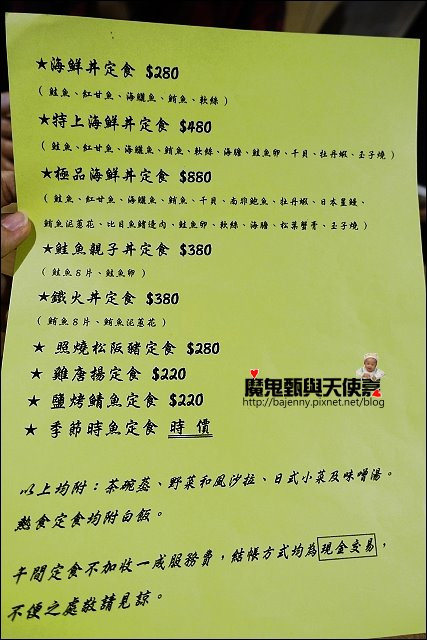 ★海鮮丼定食 $280
(鮭魚、紅甘魚、海鱺魚、鮪魚、軟絲)
★特上海鮮丼定食 $480
(鮭魚、紅甘魚、海鱺魚、鮪魚、軟絲、海膽、鮭魚卵、干貝、牡丹蝦、玉子燒)
★極品海鮮丼定食 $880
(鮭魚、紅甘魚、海鱺魚、鮪魚、干貝、南非鮑魚、牡丹蝦、日本星鰻、
鮪魚泥蔥花、比目魚鰭邊肉、鮭魚卵、軟絲、海膽、松葉蟹膏、玉子燒)
★鮭魚親子丼定食 $380
(鮭魚8片、鮭魚卵)
★鐵火丼定食 $380
(鮪魚8片、鮪魚泥蔥花)
★ 照燒松阪豬定食 $280
★ 雞唐揚定食 $220
★ 鹽烤鯖魚定食 $220
★ 季節時魚定食 時價
魔鬼甄與天使嘉
http://bajenny.pixnet.net/blog
以上均附：茶碗蒸、野菜和風沙拉、日式小菜及味噌湯。
熱食定食均附白飯。
午間定食不加收一成服務費，結帳方式均為現金交易，
不便之處敬請見諒。